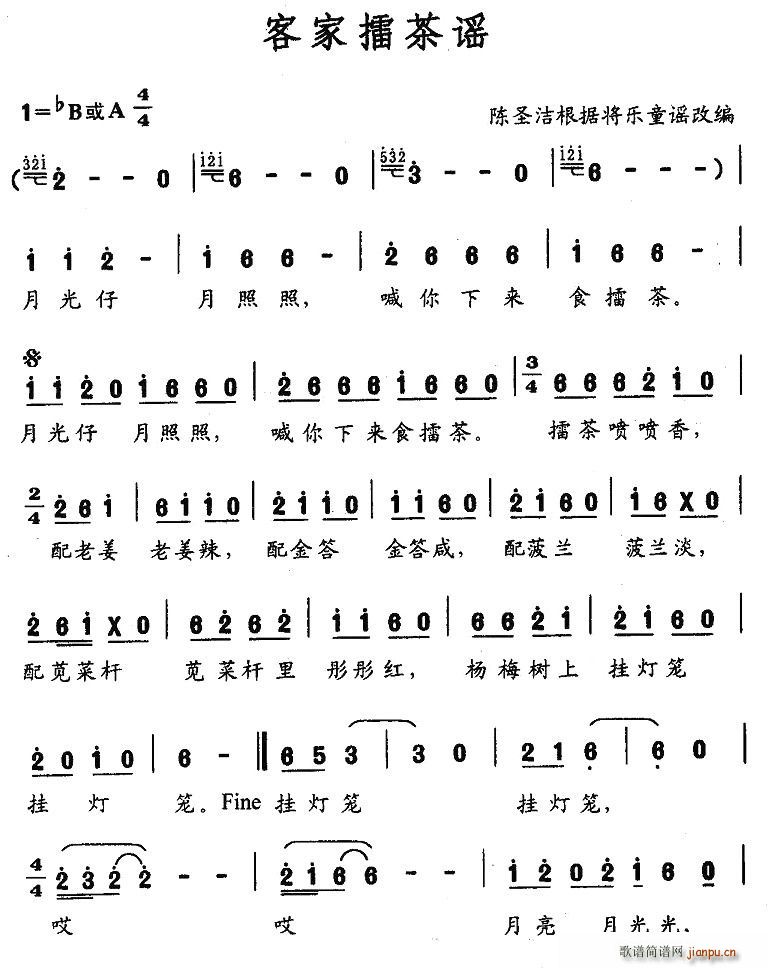 客家擂茶谣
1=♭B或A 4/4 陈圣洁根据将乐童谣改编
(3̇2̇1̇ 2̇ - - 0 | 1̇2̇1̇ 6 - - 0 | 5̇3̇2̇ 3̇ - - 0 | 1̇2̇1̇ 6 - - - ) |
1̇ 1̇ 2̇ - | 1̇ 6 6 - | 2̇ 6 6 6 | 1̇ 6 6 - |
月光仔 月照照, 喊你下来 食擂茶。
1̇ 1̇ 2̇ 0 1̇ 6 6 0 | 2̇ 6 6 6 1̇ 6 6 0 | 3/4 6 6 6 2̇ 1̇ 0 |
月光仔 月照照, 喊你下来食擂茶。 擂茶喷喷香,
2/4 2̇ 6 1̇ | 6 1̇ 1̇ 0 | 2̇ 1̇ 1̇ 0 | 1̇ 1̇ 6 0 | 2̇ 1̇ 6 0 | 1̇ 6 X 0 |
配老姜 老姜辣, 配金答 金答咸, 配菠兰 菠兰淡,
2̇ 6 1̇ X 0 | 6 2̇ 6 2̇ | 1̇ 1̇ 6 0 | 6 6 2̇ 1̇ | 2̇ 1̇ 6 0 |
配苋菜杆 苋菜杆里 彤彤红, 杨梅树上 挂灯笼
2̇ 0 1̇ 0 | 6 - || 6 5 3 | 3 0 | 2 1 6̣ | 6̣ 0 |
挂 灯 笼。Fine 挂灯笼 挂灯笼,
4/4 2̇ 3̇ 2̇ 2̇ - - | 2̇ 1̇ 6 6 - - | 1̇ 2̇ 0 2̇ 1̇ 6 0 |
哎 哎 月亮 月光光,
歌谱简谱网 jianpu.cn